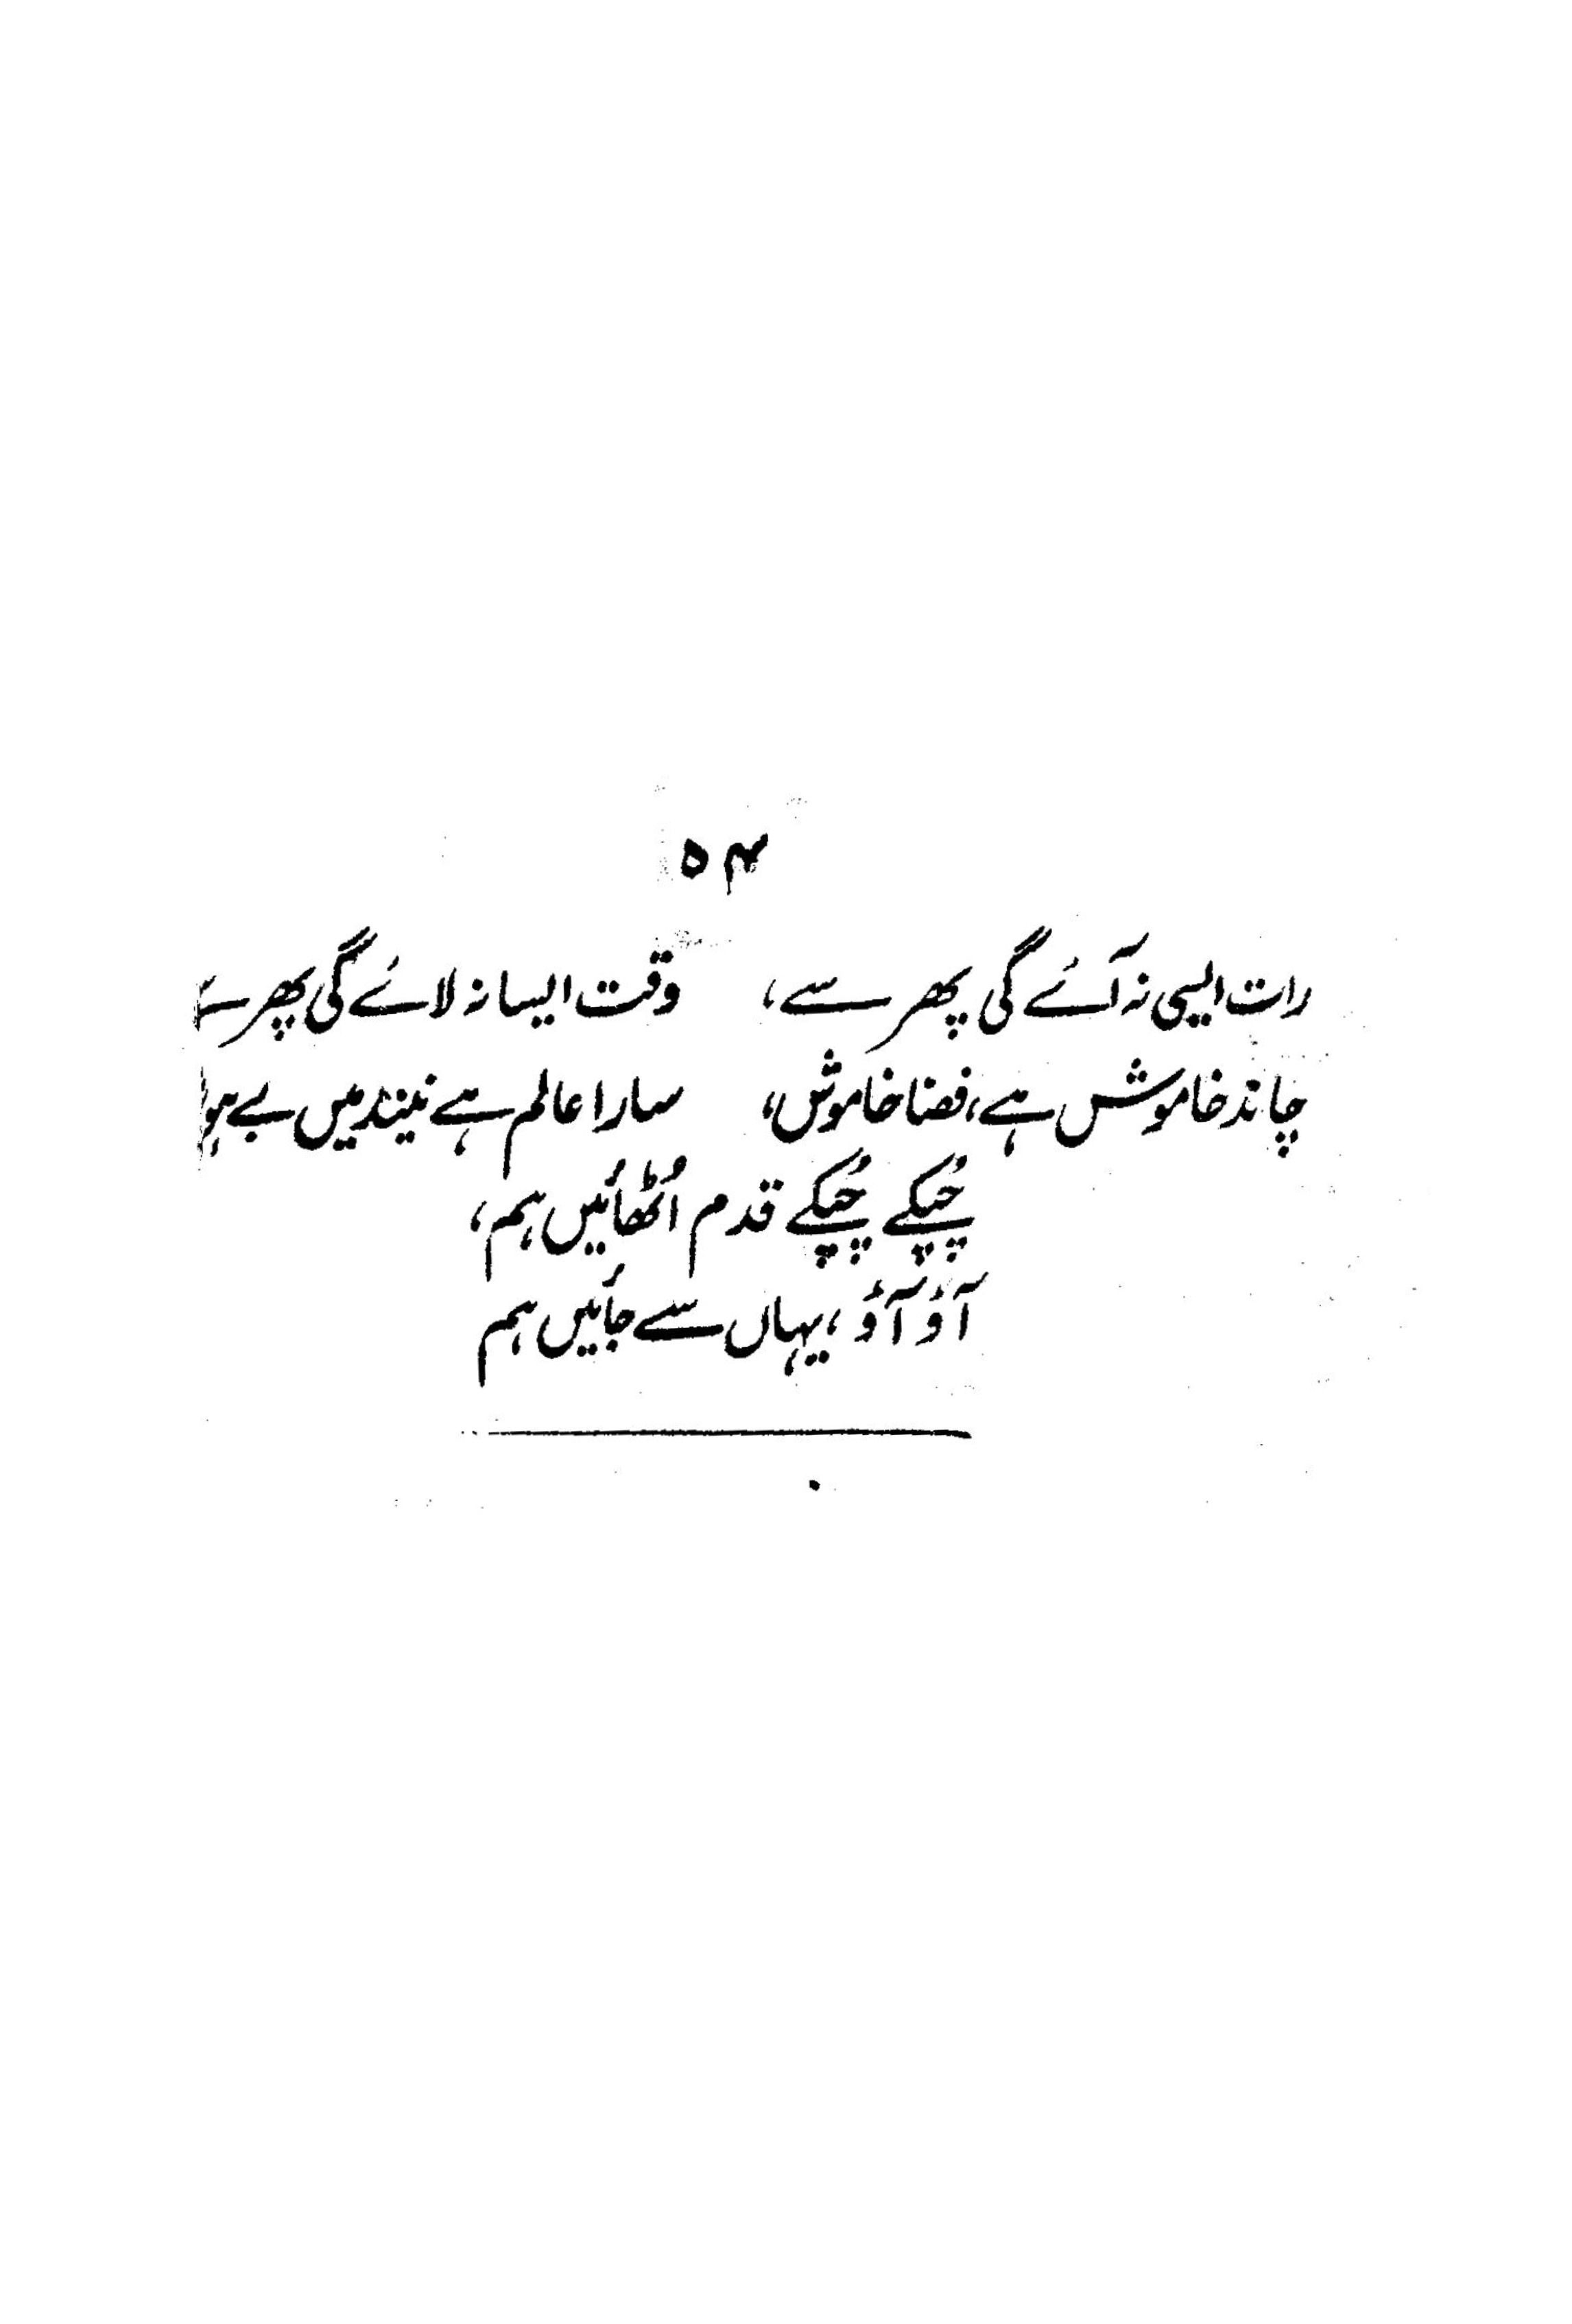 ۵۴
رات ایسی نہ آئے گی پھر سے، وقت ایسا نہ لائے گی پھر
چاند خاموش ہے، فضا خاموش، سارا عالم ہے نیند میں بے
چُپکے چُپکے قدم اُٹھائیں ہم،
آؤ آؤ، یہاں سے جائیں ہم